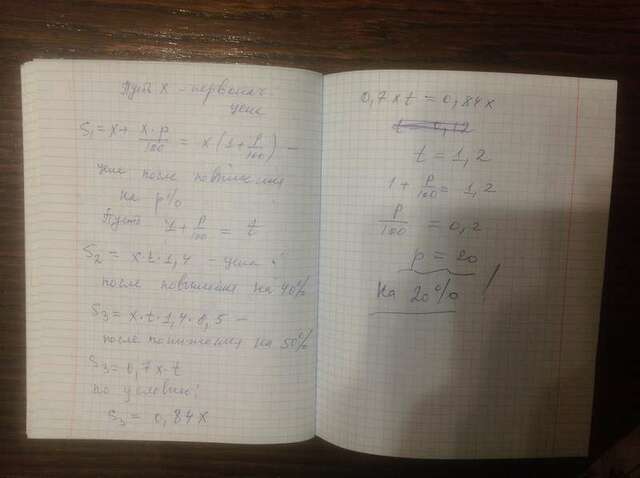 Пусть x - первонач
цена
S₁ = x + x·p/100 = x(1 + p/100) -
цена после повышения
на p%
Пусть 1 + p/100 = t
S₂ = x·t·1,4 - цена
после повышения на 40%
S₃ = x·t·1,4·0,5 -
после понижения на 50%
S₃ = 0,7x·t
по условию:
S₃ = 0,84x
0,7xt = 0,84x
t = 0,12
t = 1,2
1 + p/100 = 1,2
p/100 = 0,2
p = 20
На 20% !